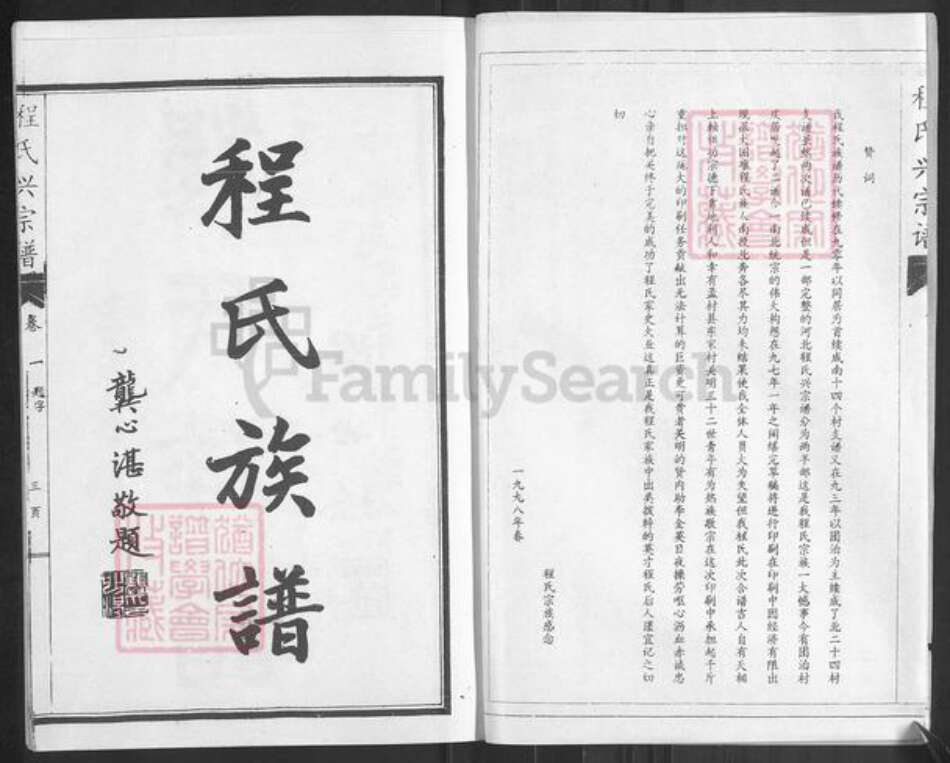 程氏兴宗谱
赞词
我程氏族谱历代续修在九零年以同居为首续成南十四个村支谱又在九三年以团治为主续成了北二十四村
支谱虽然两次谱已续成但是一部完整的河北程氏兴宗谱分为两半部这是我程氏宗族一大憾事今有团治村
二谱合一南北统宗的伟大构想在九七年一年之间续完草稿将进行印刷在印刷中因经济有限出
现很大困难程氏族人南投北奔各尽其力均未结果使我全体人员大为失望但我程氏此次合谱吉人自有天相
上赖祖功宗德下有地利人和幸有孟村县东宋村关明三十二世青年有为热族敬宗在这次印刷中承担起千斤
重担对这庞大的印刷任务贡献出无法计算的巨资更可贵者关明的贤内助李金英日夜操劳呕心沥血赤诚忠
心亲自把关终于完美的成功了程氏家史大业这真正是我程氏家族中出类拔粹的英才程氏后人谨宜记之切
切
一九九八年春
程氏宗族感念
程氏族譜
龔心湛敬題
程氏兴宗谱
卷一
题字
三页
FamilySearch